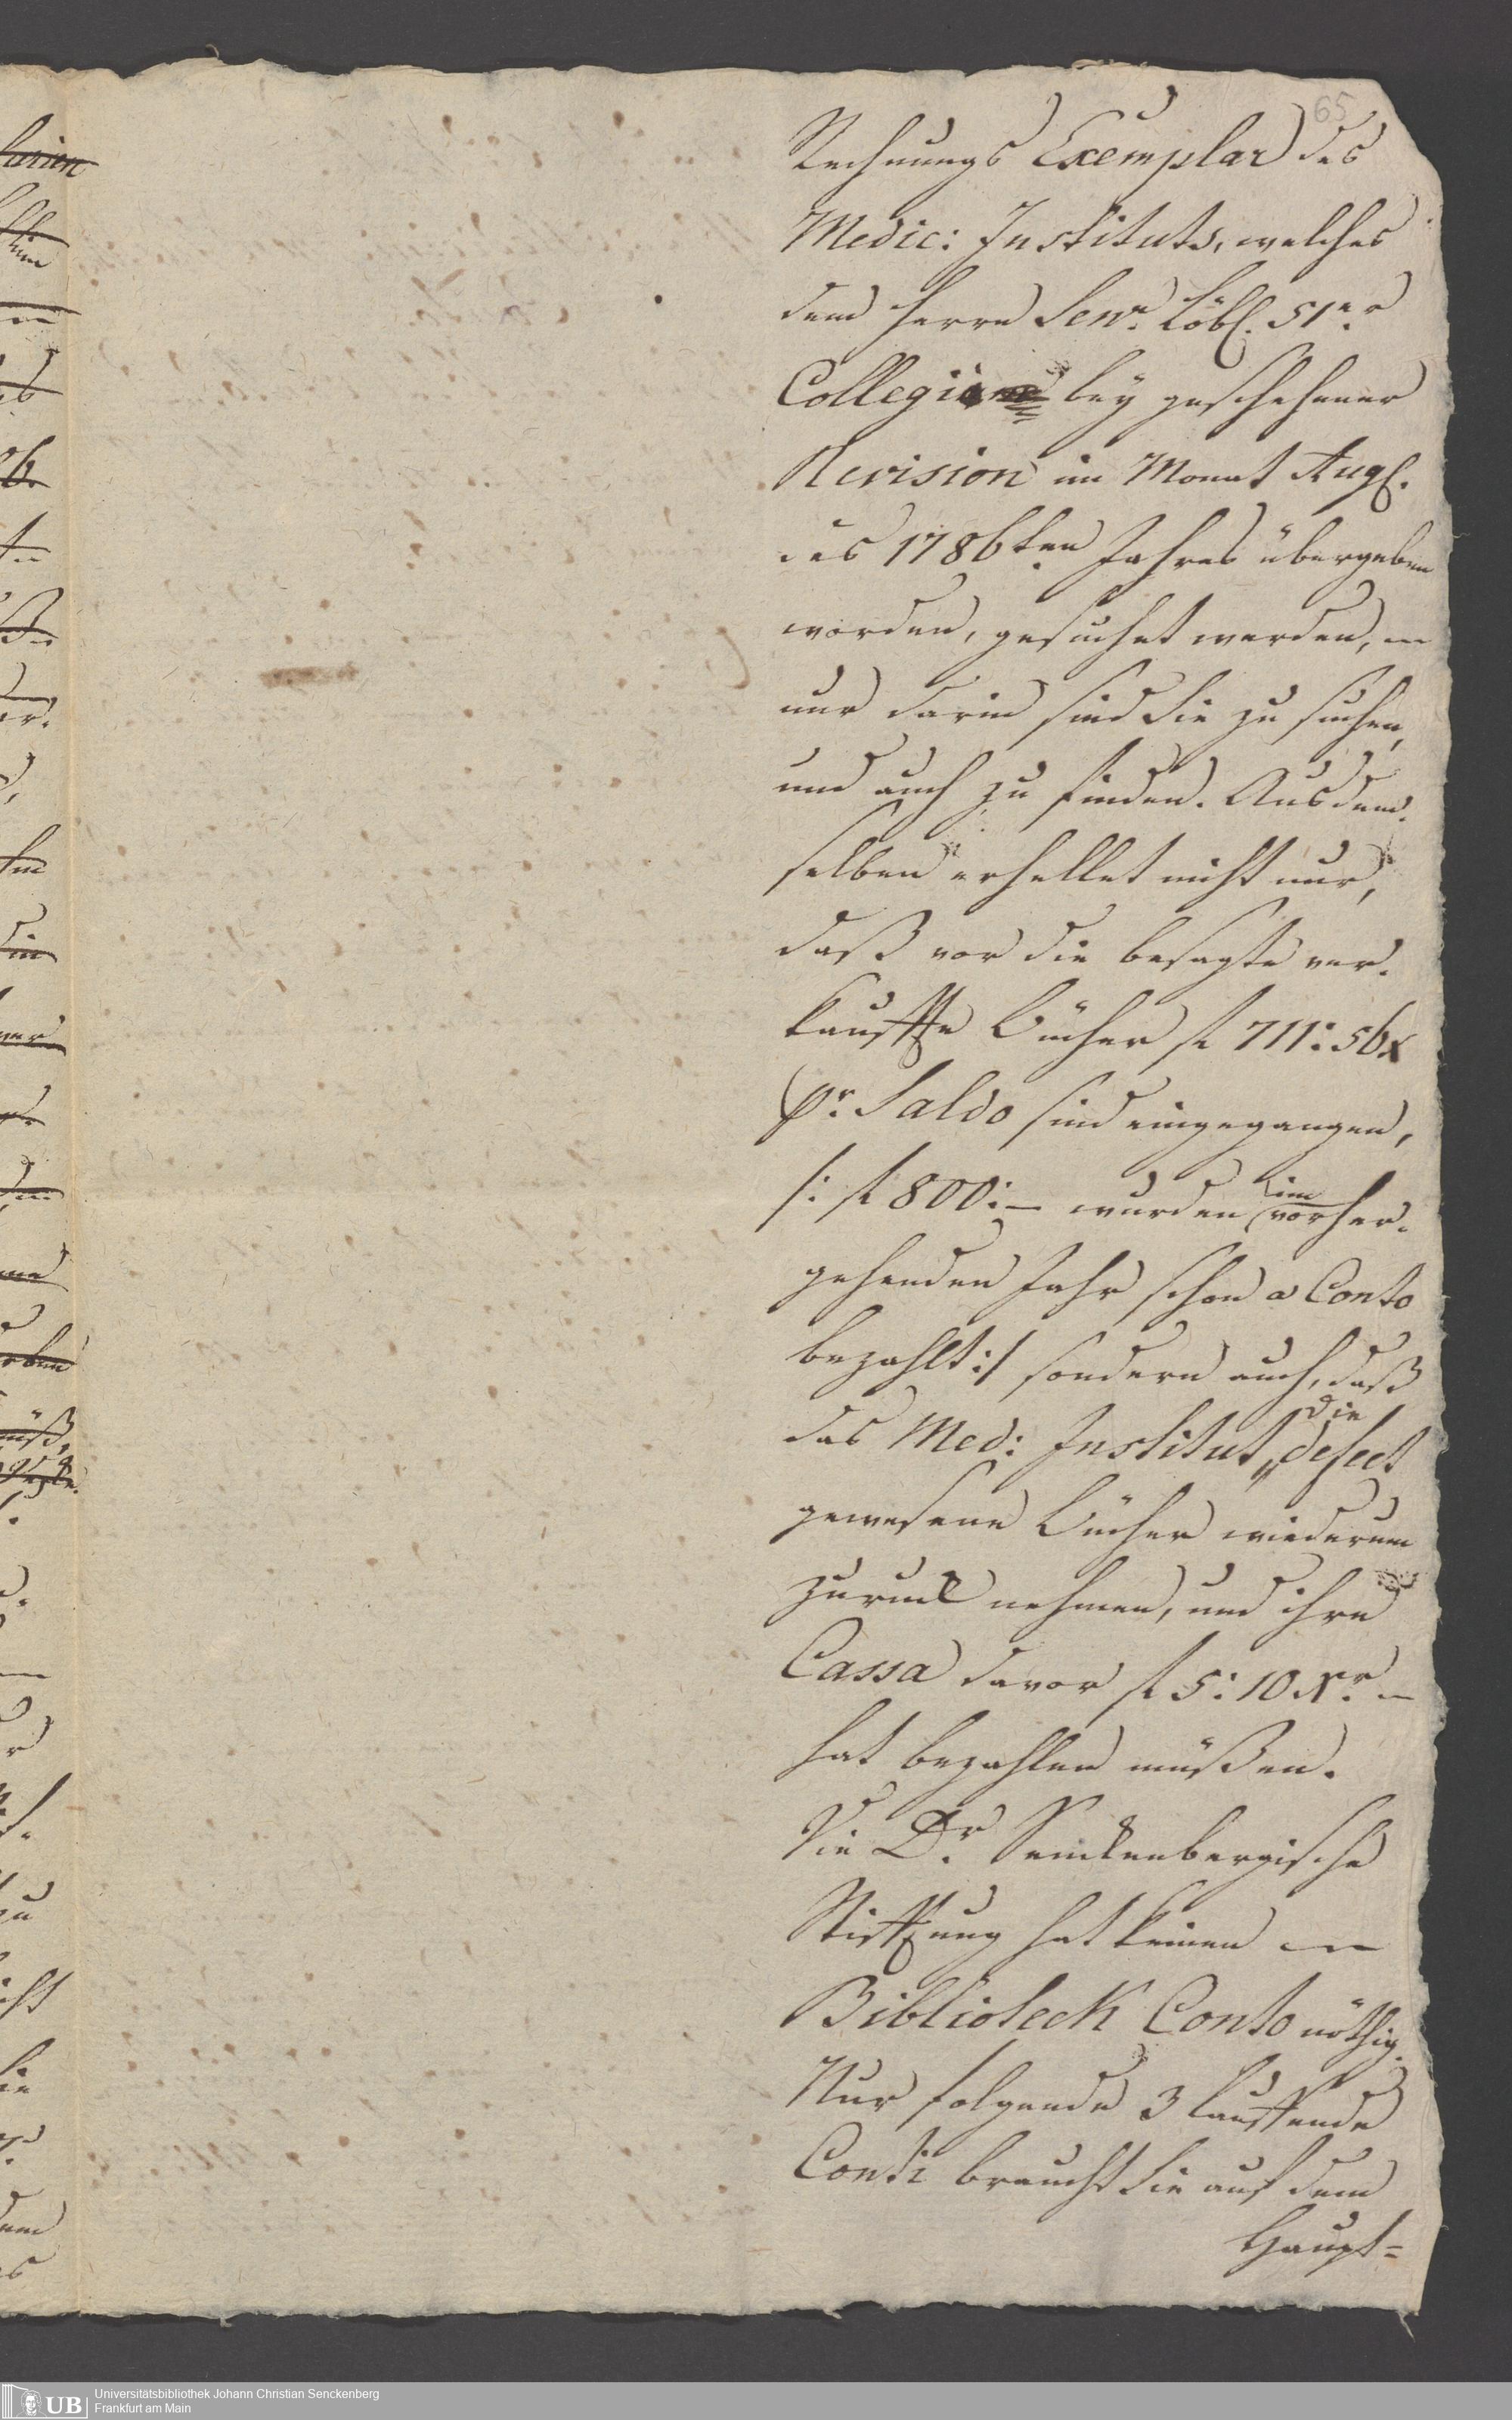 65
Rechnungs Exemplar des
Medic: Instituts, welches
dem Herrn Senr. Löbl. 51er
Collegii bey geschehener
Revision im Monat Augs.
des 1786ten Jahres übergeben
worden, gesuchet werden,
nur darin sind sie zu suchen,
und auch zu finden. Aus dem-
selben erhellet nicht nur,
daß vor die besagte ver-
kauffte Bücher f 711:56x
pr. Saldo sind eingegangen,
/: f 800:— wurden im vorher-
gehenden Jahr schon a Conto
bezahlt:/ sondern auch, daß
das Med: Institut, die defect
gewesene Bücher wiederum
zuruck nehmen, und ihre
Cassa davor f 5:10 Xr. —
hat bezahlen müßen.
Die Dr. Senckenbergische
Stiftung hat keinen
Biblioteck Conto nöthig.
Nur folgende 3 lauffende
Conti braucht sie auf dem
Haupt=
UB
Universitätsbibliothek Johann Christian Senckenberg
Frankfurt am Main